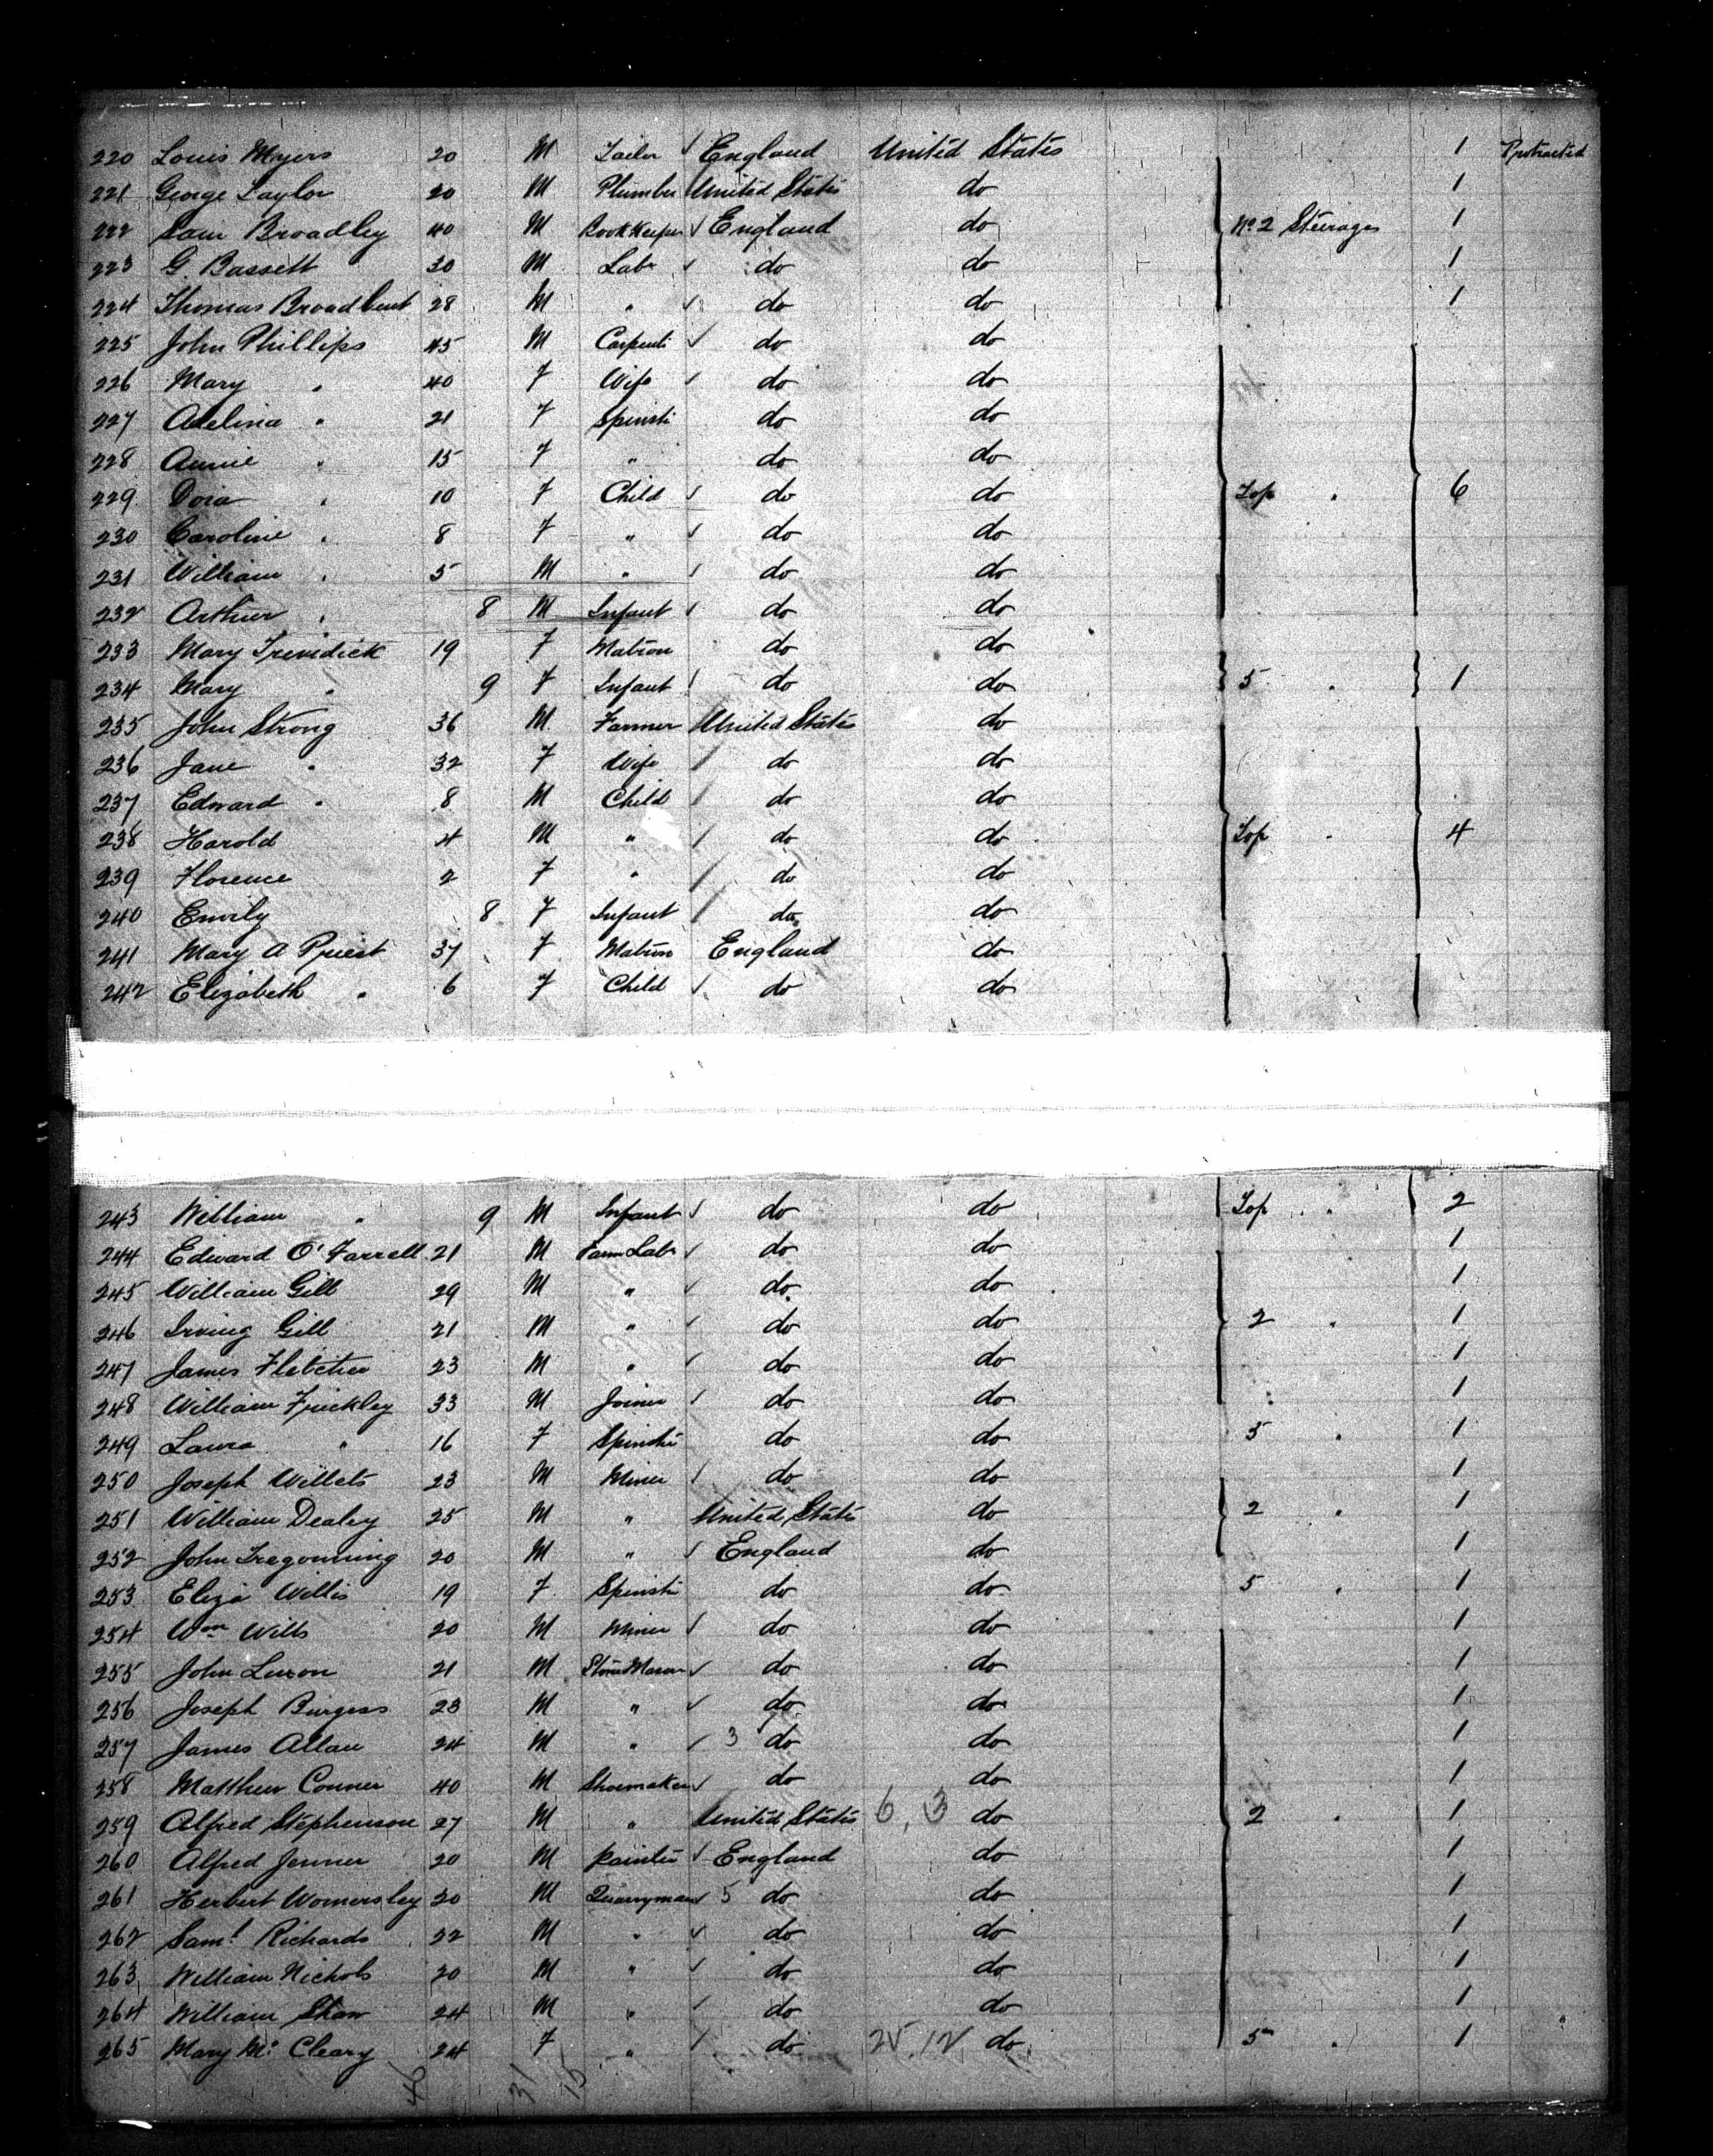 220 Louis Myers 20 M Tailor ✓ England United States 1 Protracted
221 George Taylor 20 M Plumber United States do 1
222 Sam Broadley 40 M Book Keeper ✓ England do No 2 Steerage 1
223 G. Bassett 30 M Labr ✓ do do 1
224 Thomas Broadbent 28 M " ✓ do do 1
225 John Phillips 45 M Carpentr ✓ do do
226 Mary " 40 F Wife ✓ do do
227 Adelina " 21 F Spinstr do do
228 Annie " 15 F " do do
229 Dora " 10 F Child ✓ do do Top " 6
230 Caroline " 8 F " ✓ do do
231 William " 5 M " ✓ do do
232 Arthur " 8 M Infant ✓ do do
233 Mary Trevidick 19 F Matron do do
234 Mary " 9 F Infant ✓ do do 5 " 1
235 John Strong 36 M Farmer United States do
236 Jane " 32 F Wife / do do
237 Edward " 8 M Child / do do
238 Harold 4 M " / do do Top " 4
239 Florence 2 F " / do do
240 Emily 8 F Infant / do do
241 Mary A Priest 37 F Matron England do
242 Elizabeth " 6 F Child ✓ do do
243 William " 9 M Infant ✓ do do Top " 2
244 Edward O'Farrell 21 M Farm Labr ✓ do do 1
245 William Gill 29 M " ✓ do do 1
246 Irving Gill 21 M " ✓ do do 2 " 1
247 James Fletcher 23 M " ✓ do do 1
248 William Frickley 33 M Joiner ✓ do do 1
249 Laura " 16 F Spinstr do do 5 " 1
250 Joseph Willets 23 M Miner ✓ do do 1
251 William Dealey 25 M " United States do 2 " 1
252 John Tregonning 20 M " ✓ England do 1
253 Eliza Willis 19 F Spinstr do do 5 " 1
254 Wm Wills 20 M Miner ✓ do do 1
255 John Luxon 21 M Stone Mason ✓ do do 1
256 Joseph Burgess 23 M " ✓ do do 1
257 James Allan 24 M " ✓ 3 do do 1
258 Matthew Conner 40 M Shoemaker ✓ do do 1
259 Alfred Stephenson 27 M " United States 6, 3 do 2 " 1
260 Alfred Jenner 20 M Painter ✓ England do 1
261 Herbert Womersley 20 M Quarryman ✓ 5 do do 1
262 Saml Richards 22 M " ✓ do do 1
263 William Nichols 20 M " ✓ do do 1
264 William Shaw 24 M " ✓ do do 1
265 Mary Mc Cleary 24 F " / do 25.12 do 5 " 1
46 31 15